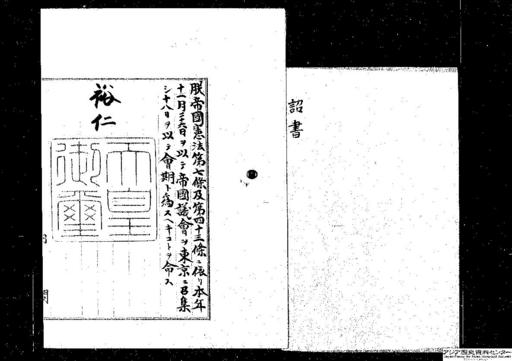 詔書
朕帝國憲法第七條及第四十三條ニ依リ本年
十一月二十六日ヲ以テ帝國議會ヲ東京ニ召集
シ十八日ヲ以テ會期ト爲スヘキコトヲ命ス
裕仁
天皇
御璽
アジア歴史資料センター